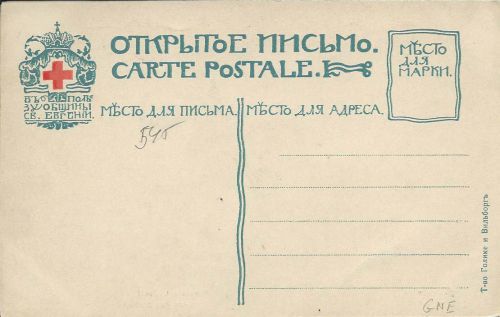 ОТКРЫТОЕ ПИСЬМО.
CARTE POSTALE.
МѢСТО
ДЛЯ
МАРКИ.
ВЪ ПОЛЬ
ЗУ ОБЩИНЫ
СВ. ЕВГЕНІИ.
МѢСТО ДЛЯ ПИСЬМА.
МѢСТО ДЛЯ АДРЕСА.
Т-во Голике и Вильборгъ
GNE